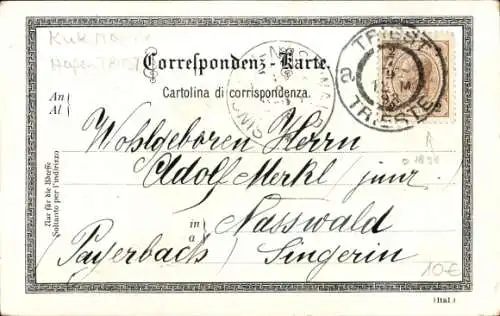 K u K Marine
Hafen
Correspondenz-Karte.
Cartolina di corrispondenza.
TRIEST
TRIESTE
2
An
Al
Wohlgeboren Herrn
Adolf Merkl junr.
in
a
Nasswald
Payerbach Singerin
Nur für die Adresse
Soltanto per l'indirizzo
R
01898
10-€
(Ital.)